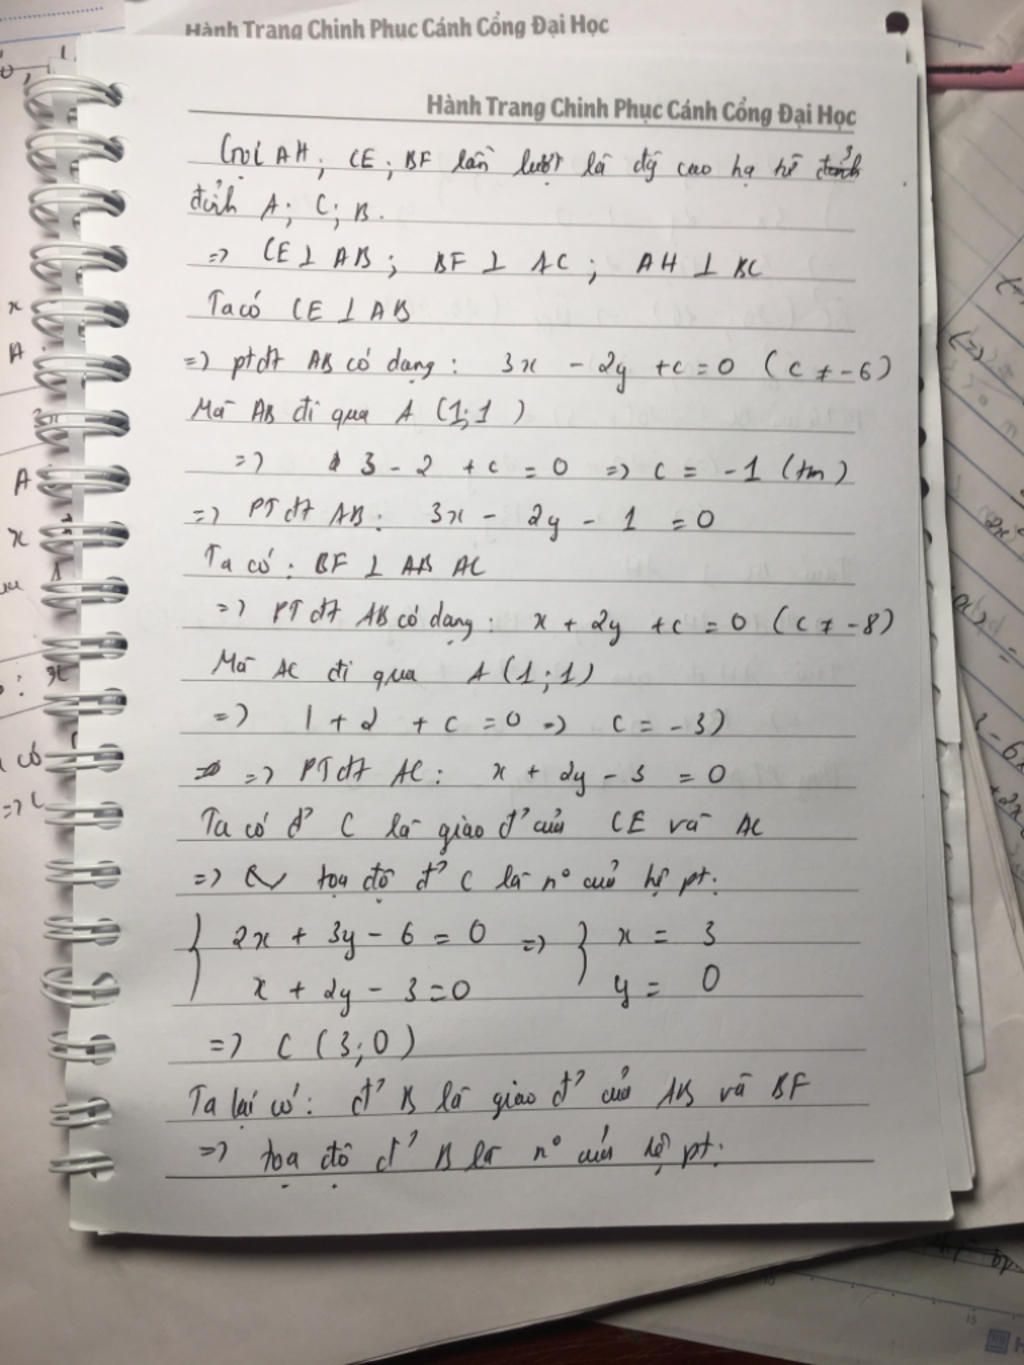 Hành Trang Chinh Phục Cánh Cổng Đại Học
Hành Trang Chinh Phục Cánh Cổng Đại Học
Gọi AH; CE; BF lần lượt là đg cao hạ từ 3
đỉnh A; C; B.
=> CE ⊥ AB; BF ⊥ AC; AH ⊥ BC
Ta có CE ⊥ AB
=> pt đt AB có dạng: 3x - 2y + c = 0 (c ≠ -6)
Mà AB đi qua A (1;1)
=> 3 - 2 + c = 0 => c = -1 (tm)
=> PT đt AB: 3x - 2y - 1 = 0
Ta có: BF ⊥ AB AC
=> PT đt AB có dạng: x + 2y + c = 0 (c ≠ -8)
Mà AC đi qua A (1;1)
=> 1 + 2 + c = 0 => c = -3)
=> PT đt AC: x + 2y - 3 = 0
Ta có đ' C là giao đ' của CE và AC
=> tọa độ đ' C là n° của hệ pt:
{ 2x + 3y - 6 = 0 => { x = 3
x + 2y - 3 = 0 y = 0
=> C (3;0)
Ta lại có: đ' B là giao đ' của AB và BF
=> tọa độ đ' B là n° của hệ pt: